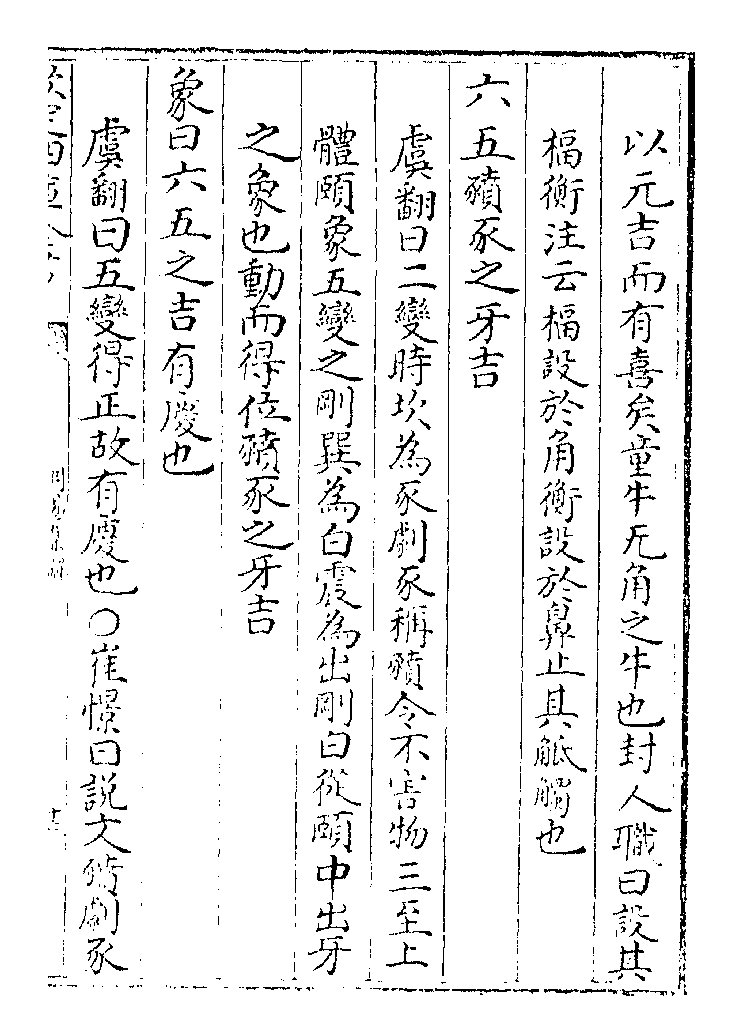 以元吉而有喜矣童牛无角之牛也封人職曰設其
楅衡注云楅設於角衡設於鼻止其觝觸也
六五豶豕之牙吉
虞翻曰二變時坎為豕劇豕稱豶令不害物三至上
體頤象五變之剛巽為白震為出剛白從頤中出牙
之象也動而得位豶豕之牙吉
象曰六五之吉有慶也
虞翻曰五變得正故有慶也○崔憬曰説文豶劇豕